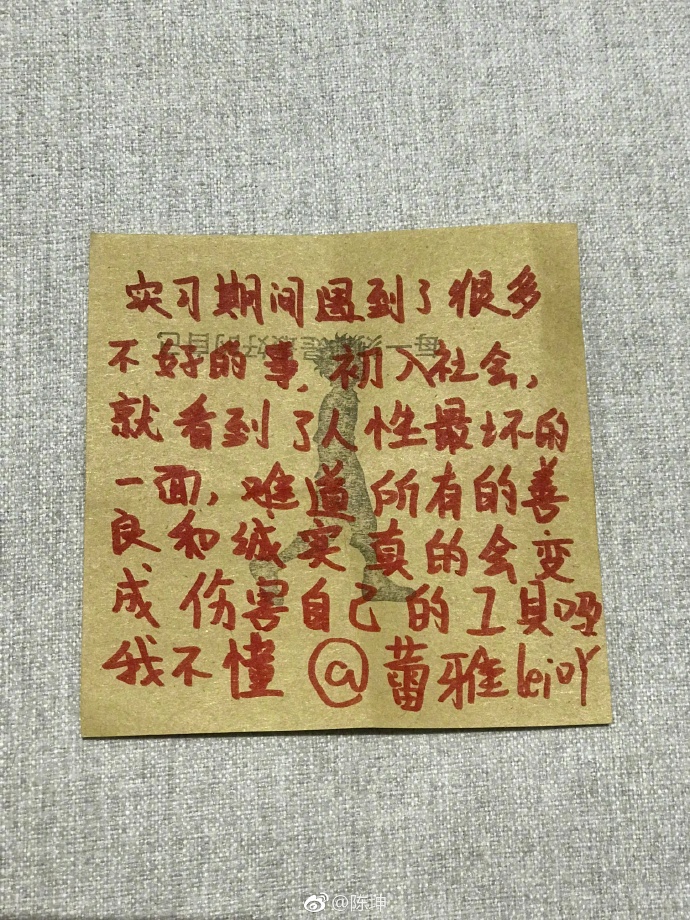 实习期间遇到了很多
每一刻都是最好的自己
不好的事,初入社会,
就看到了人性最坏的
一面,难道所有的善
良和诚实真的会变
成伤害自己的工具吗
我不懂@蕾雅lei吖
@陈坤